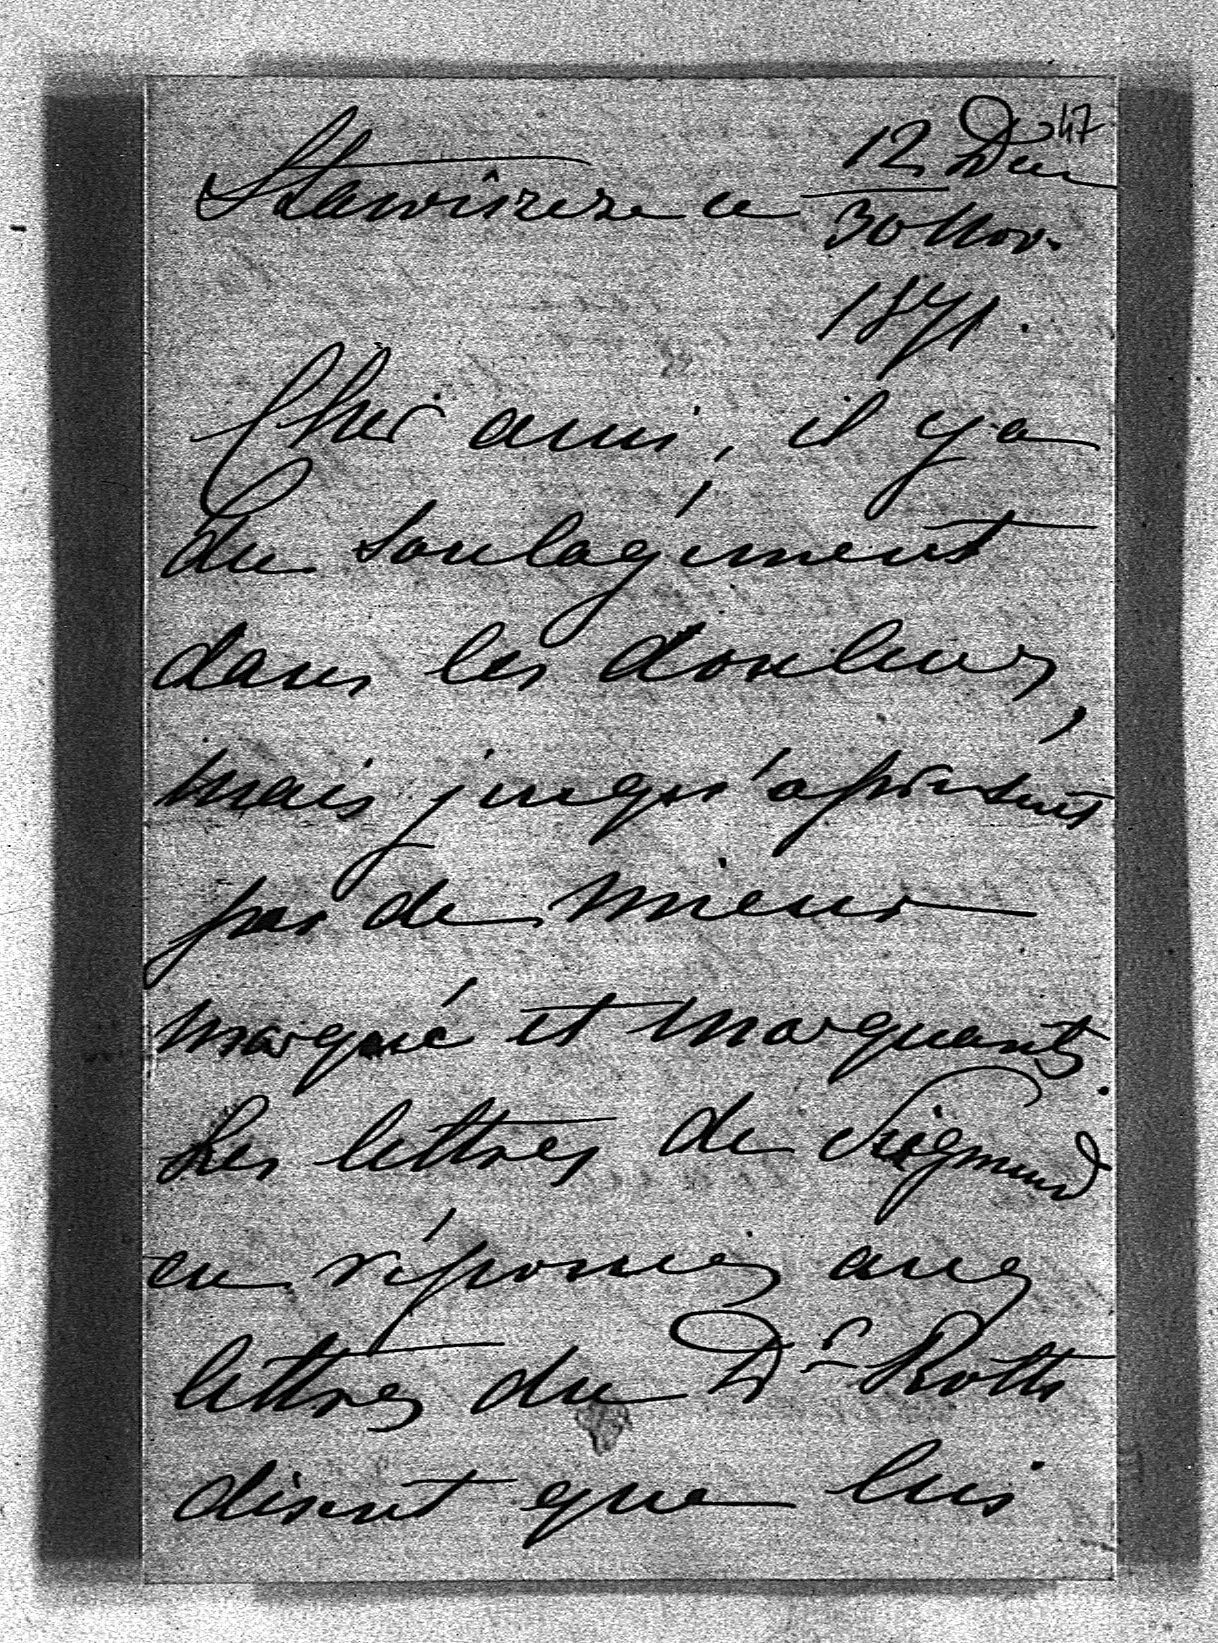 47
Stawirzeze ce 12 Dec
30 Nov.
1871.
Cher ami, il y a
du soulagement
dans les douleurs,
mais jusqu'à présent
pas de mieux
marqué et marquant.
Les lettres de Siegmund
en réponses aux
lettres du Dr Roth
disent que lui